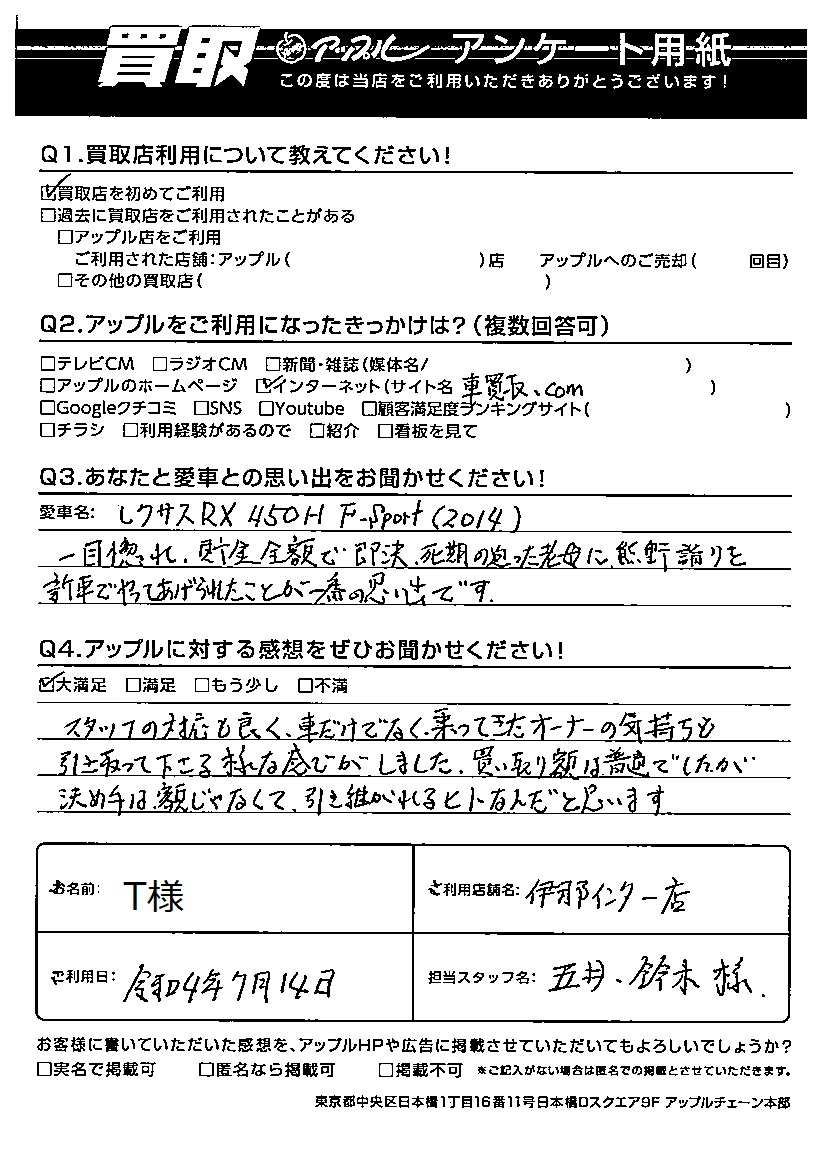 買取 アップル アンケート用紙
この度は当店をご利用いただきありがとうございます!
Q1.買取店利用について教えてください!
☑買取店を初めてご利用
□過去に買取店をご利用されたことがある
□アップル店をご利用
ご利用された店舗:アップル( )店 アップルへのご売却( 回目)
□その他の買取店( )
Q2.アップルをご利用になったきっかけは?(複数回答可)
□テレビCM □ラジオCM □新聞・雑誌(媒体名/ )
□アップルのホームページ ☑インターネット(サイト名 車買取、com )
□Googleクチコミ □SNS □Youtube □顧客満足度ランキングサイト( )
□チラシ □利用経験があるので □紹介 □看板を見て
Q3.あなたと愛車との思い出をお聞かせください!
愛車名: レクサスRX 450H F-Sport (2014)
一目惚れ、貯金全額で即決、死期の迫った老母に、熊野詣りを
新車でやってあげられたことが一番の思い出です。
Q4.アップルに対する感想をぜひお聞かせください!
☑大満足 □満足 □もう少し □不満
スタッフの対応も良く、車だけでなく、乗ってきたオーナーの気持ちも
引き取って下さる様な感じがしました。買い取り額は普通でしたが
決め手は額じゃなくて、引き継がれるヒトなんだと思います
お名前: T様
ご利用店舗名: 伊那インター店
ご利用日: 令和4年7月14日
担当スタッフ名: 五井、鈴木様.
お客様に書いていただいた感想を、アップルHPや広告に掲載させていただいてもよろしいでしょうか?
□実名で掲載可 □匿名なら掲載可 □掲載不可 ※ご記入がない場合は匿名での掲載とさせていただきます。
東京都中央区日本橋1丁目16番11号日本橋Dスクエア9F アップルチェーン本部